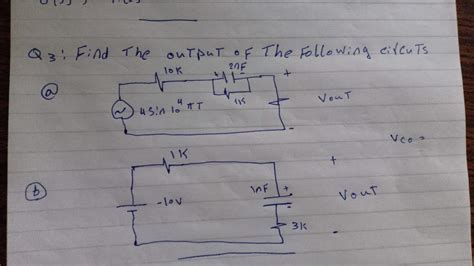 Q3: Find The output of The Following circuts
(a)
10K
2nF
+
1K
4 Sin 10⁴ πT
VouT
-
(b)
1K
+
-10V
1nF
+
VouT
-
3K